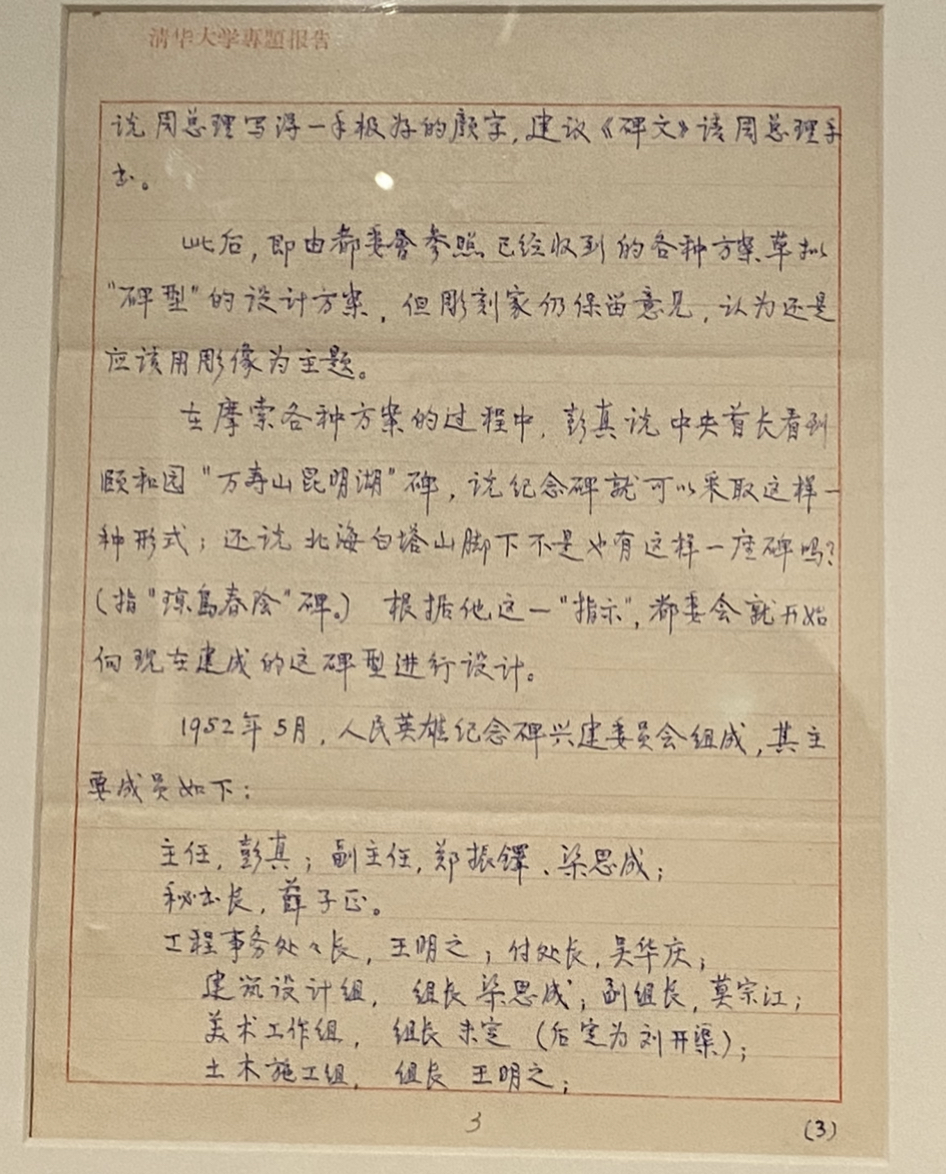 清华大学專題报告
说周总理写得一手极好的颜字，建议《碑文》请周总理手
书。
此后，即由都委會参照已经收到的各种方案草拟
"碑型"的设计方案，但彫刻家仍保留意见，认为还是
应该用彫像为主题。
在摩索各种方案的过程中，彭真说中央首长看到
颐和园"万寿山昆明湖"碑，说纪念碑就可以采取这样一
种形式；还说北海白塔山脚下不是也有这样一座碑吗？
（指"琼岛春陰"碑。）根据他这一"指示"，都委会就开始
向现在建成的这碑型进行设计。
1952年5月，人民英雄纪念碑兴建委员会组成，其主
要成员如下：
主任，彭真；副主任，郑振鐸、梁思成；
秘书长，薛子正。
工程事务处々长，王明之；付处长，吴华庆；
建筑设计组，组长 梁思成；副组长，莫宗江；
美术工作组，组长 未定（后定为刘开渠）；
土木施工组，组长 王明之；
3
(3)